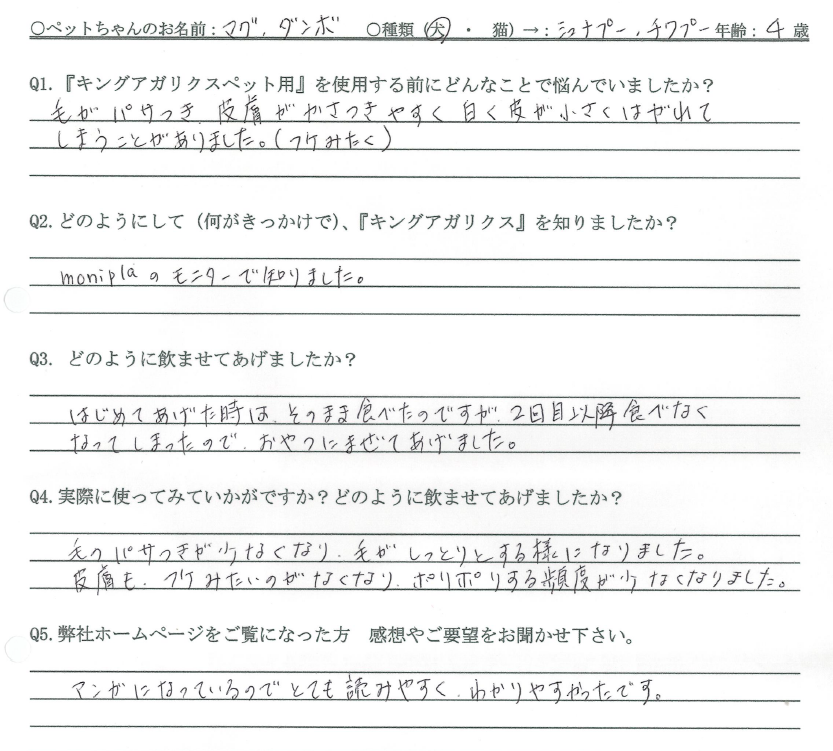 ○ペットちゃんのお名前：マグ、ダンボ　○種類（犬・　猫）→：シュナプー、チワプー 年齢：4 歳
Q1.『キングアガリクスペット用』を使用する前にどんなことで悩んでいましたか？
毛がパサつき、皮膚がかさつきやすく白く皮が小さくはがれて
しまうことがありました。(フケみたく)
Q2. どのようにして（何がきっかけで）、『キングアガリクス』を知りましたか？
moniplaのモニターで知りました。
Q3. どのように飲ませてあげましたか？
はじめてあげた時は、そのまま食べたのですが、2回目以降食べなく
なってしまったので、おやつにまぜてあげました。
Q4. 実際に使ってみていかがですか？どのように飲ませてあげましたか？
毛のパサつきが少なくなり、毛がしっとりとする様になりました。
皮膚も、フケみたいのがなくなり、ポリポリする頻度が少なくなりました。
Q5. 弊社ホームページをご覧になった方　感想やご要望をお聞かせ下さい。
マンガになっているのでとても読みやすく、わかりやすかったです。